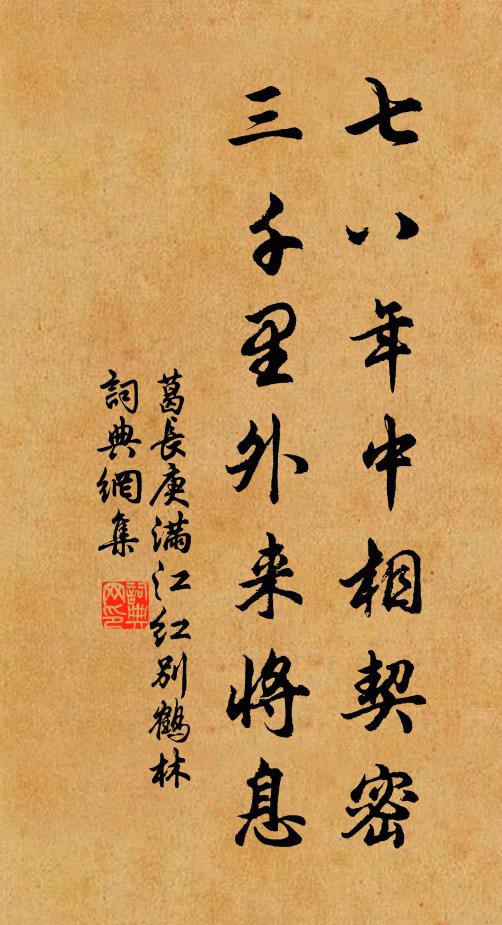 七八年中相契密
三千里外来将息
葛長庚满江红别鶴林
詞典網集
詞典
网印